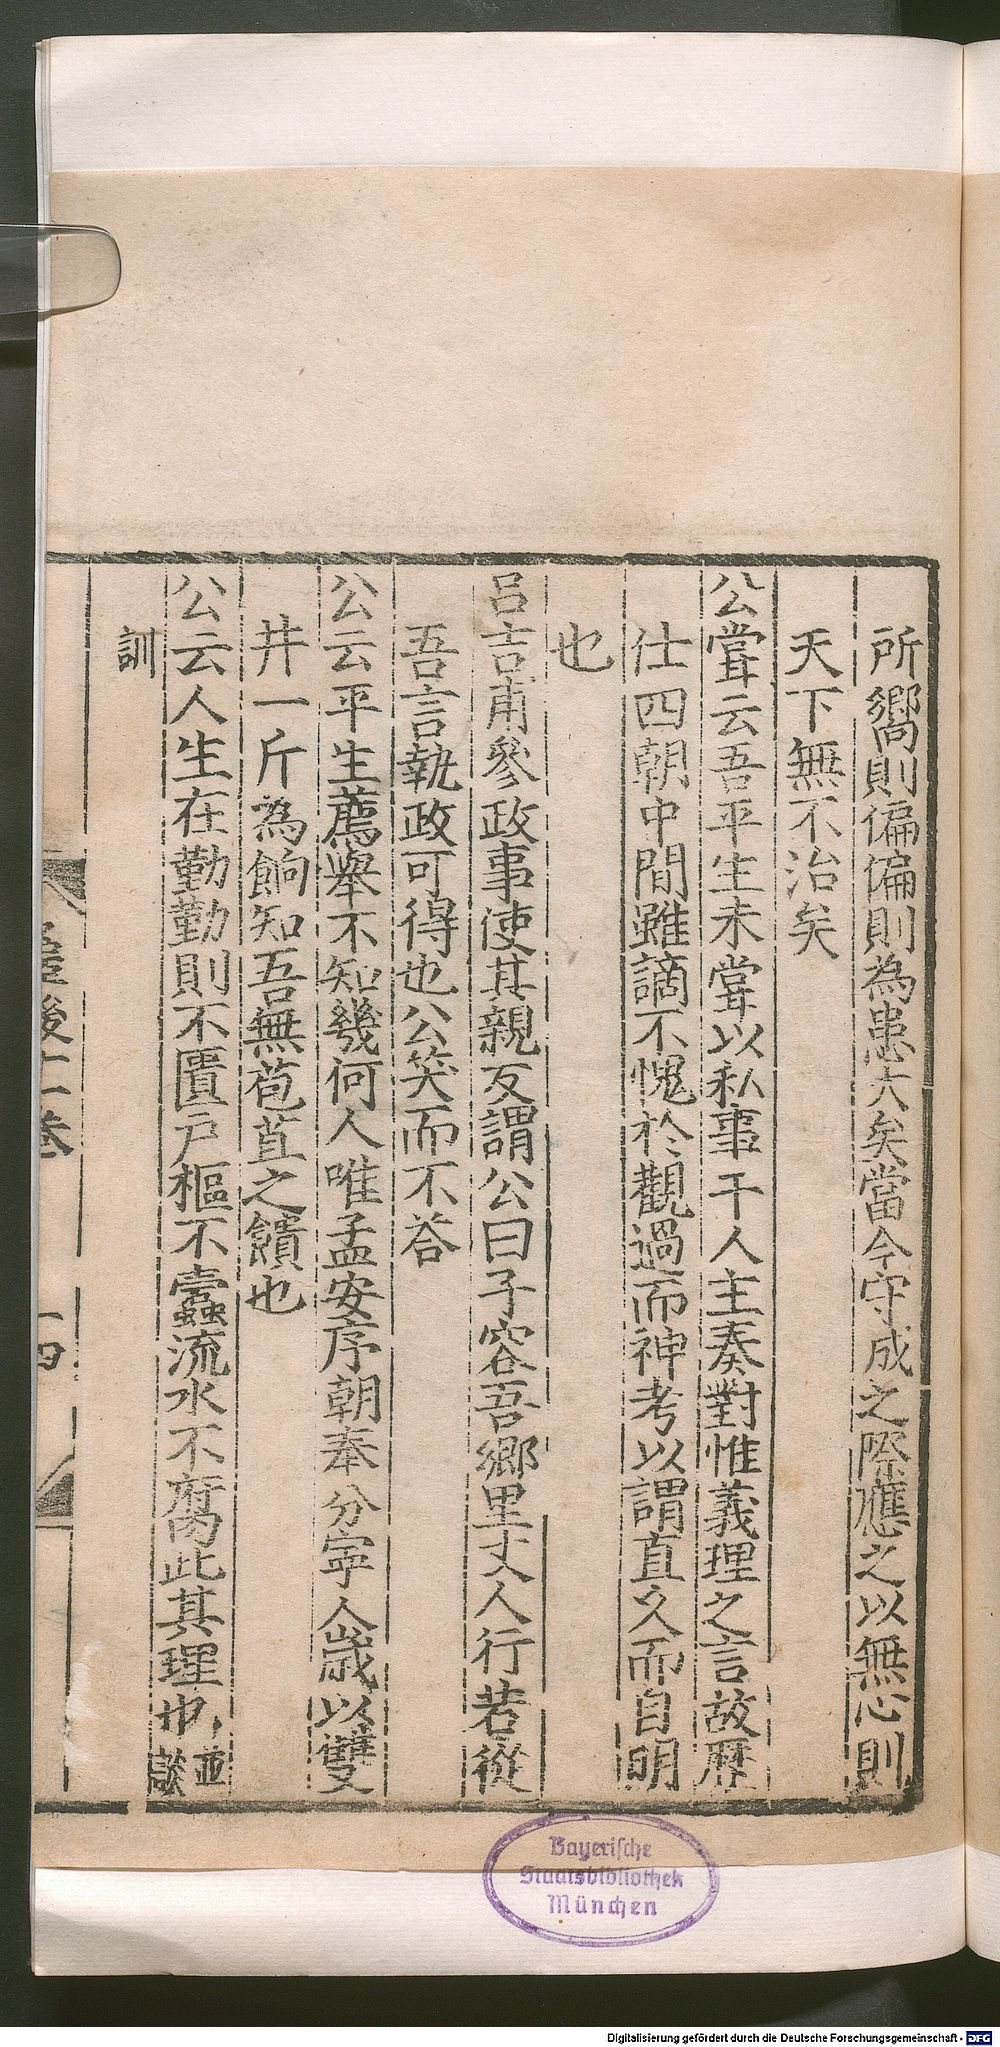 所嚮則偏偏則為患大矣當今守成之際應之以無心則
天下無不治矣
公甞云吾平生未甞以私事干人主奏對惟義理之言故歷
仕四朝中間雖謫不愧於觀過而神考以謂直久而自明
也
呂吉甫參政事使其親友謂公曰子容吾鄉里丈人行若從
吾言執政可得也公笑而不荅
公云平生薦舉不知幾何人唯孟安序朝奉分寧人歲以雙
井一斤為餉知吾無苞苴之饋也
公云人生在勤勤則不匱戶樞不蠹流水不腐此其理也並談
訓
後十二卷
十四
Bayerische
Staatsbibliothek
München
Digitalisierung gefördert durch die Deutsche Forschungsgemeinschaft - DFG